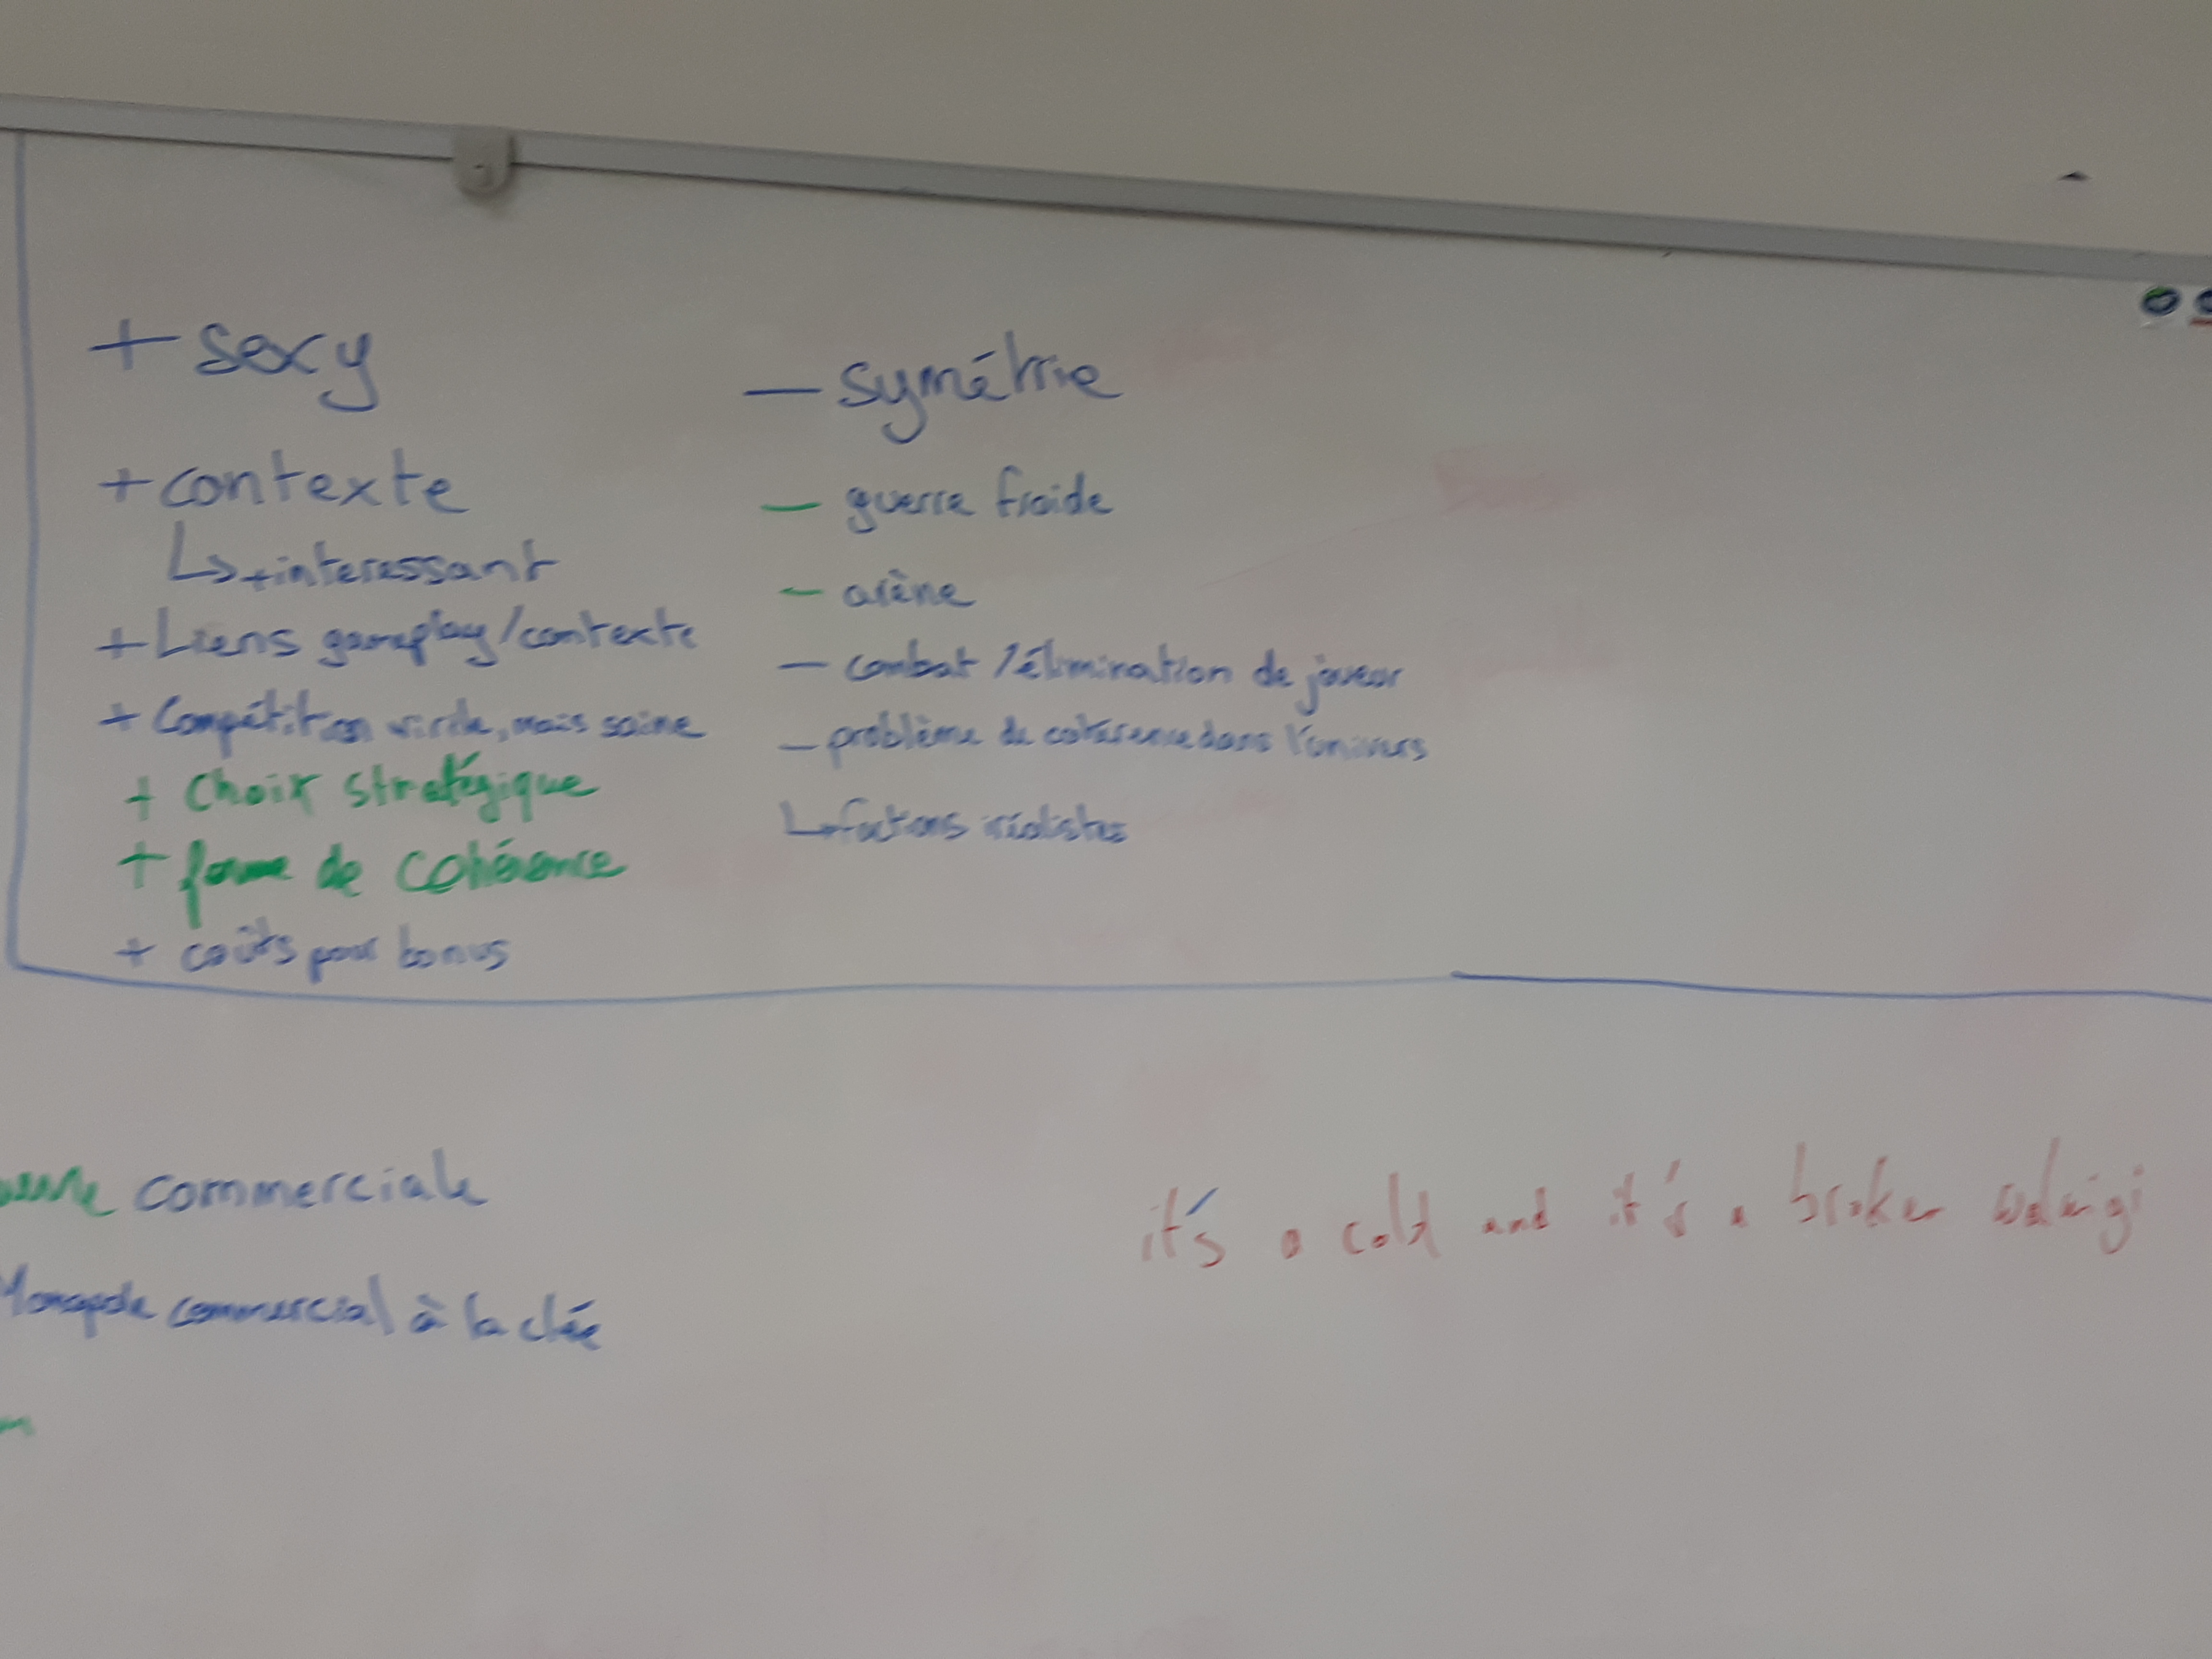 + sexy
+ contexte
↳ + interessant
+ Liens gameplay/contexte
+ Compétition virile, mais saine
+ Choix stratégique
+ forme de cohérence
+ coûts pour bonus
— symétrie
— guerre froide
— arène
— combat / élimination de joueur
— problème de cohérence dans l'univers
↳ factions réalistes
commerciale
Monopole commercial à la clée
it's a cold and it's a broken